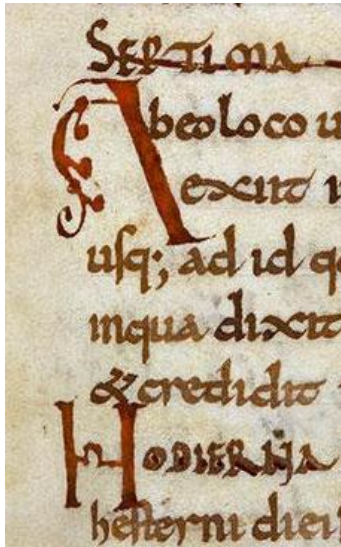 SEPTIMA
Ab eo loco u
exiit i
usq; ad id qd
in qua dixit
& credidit
HODIERNA
hesterni diei